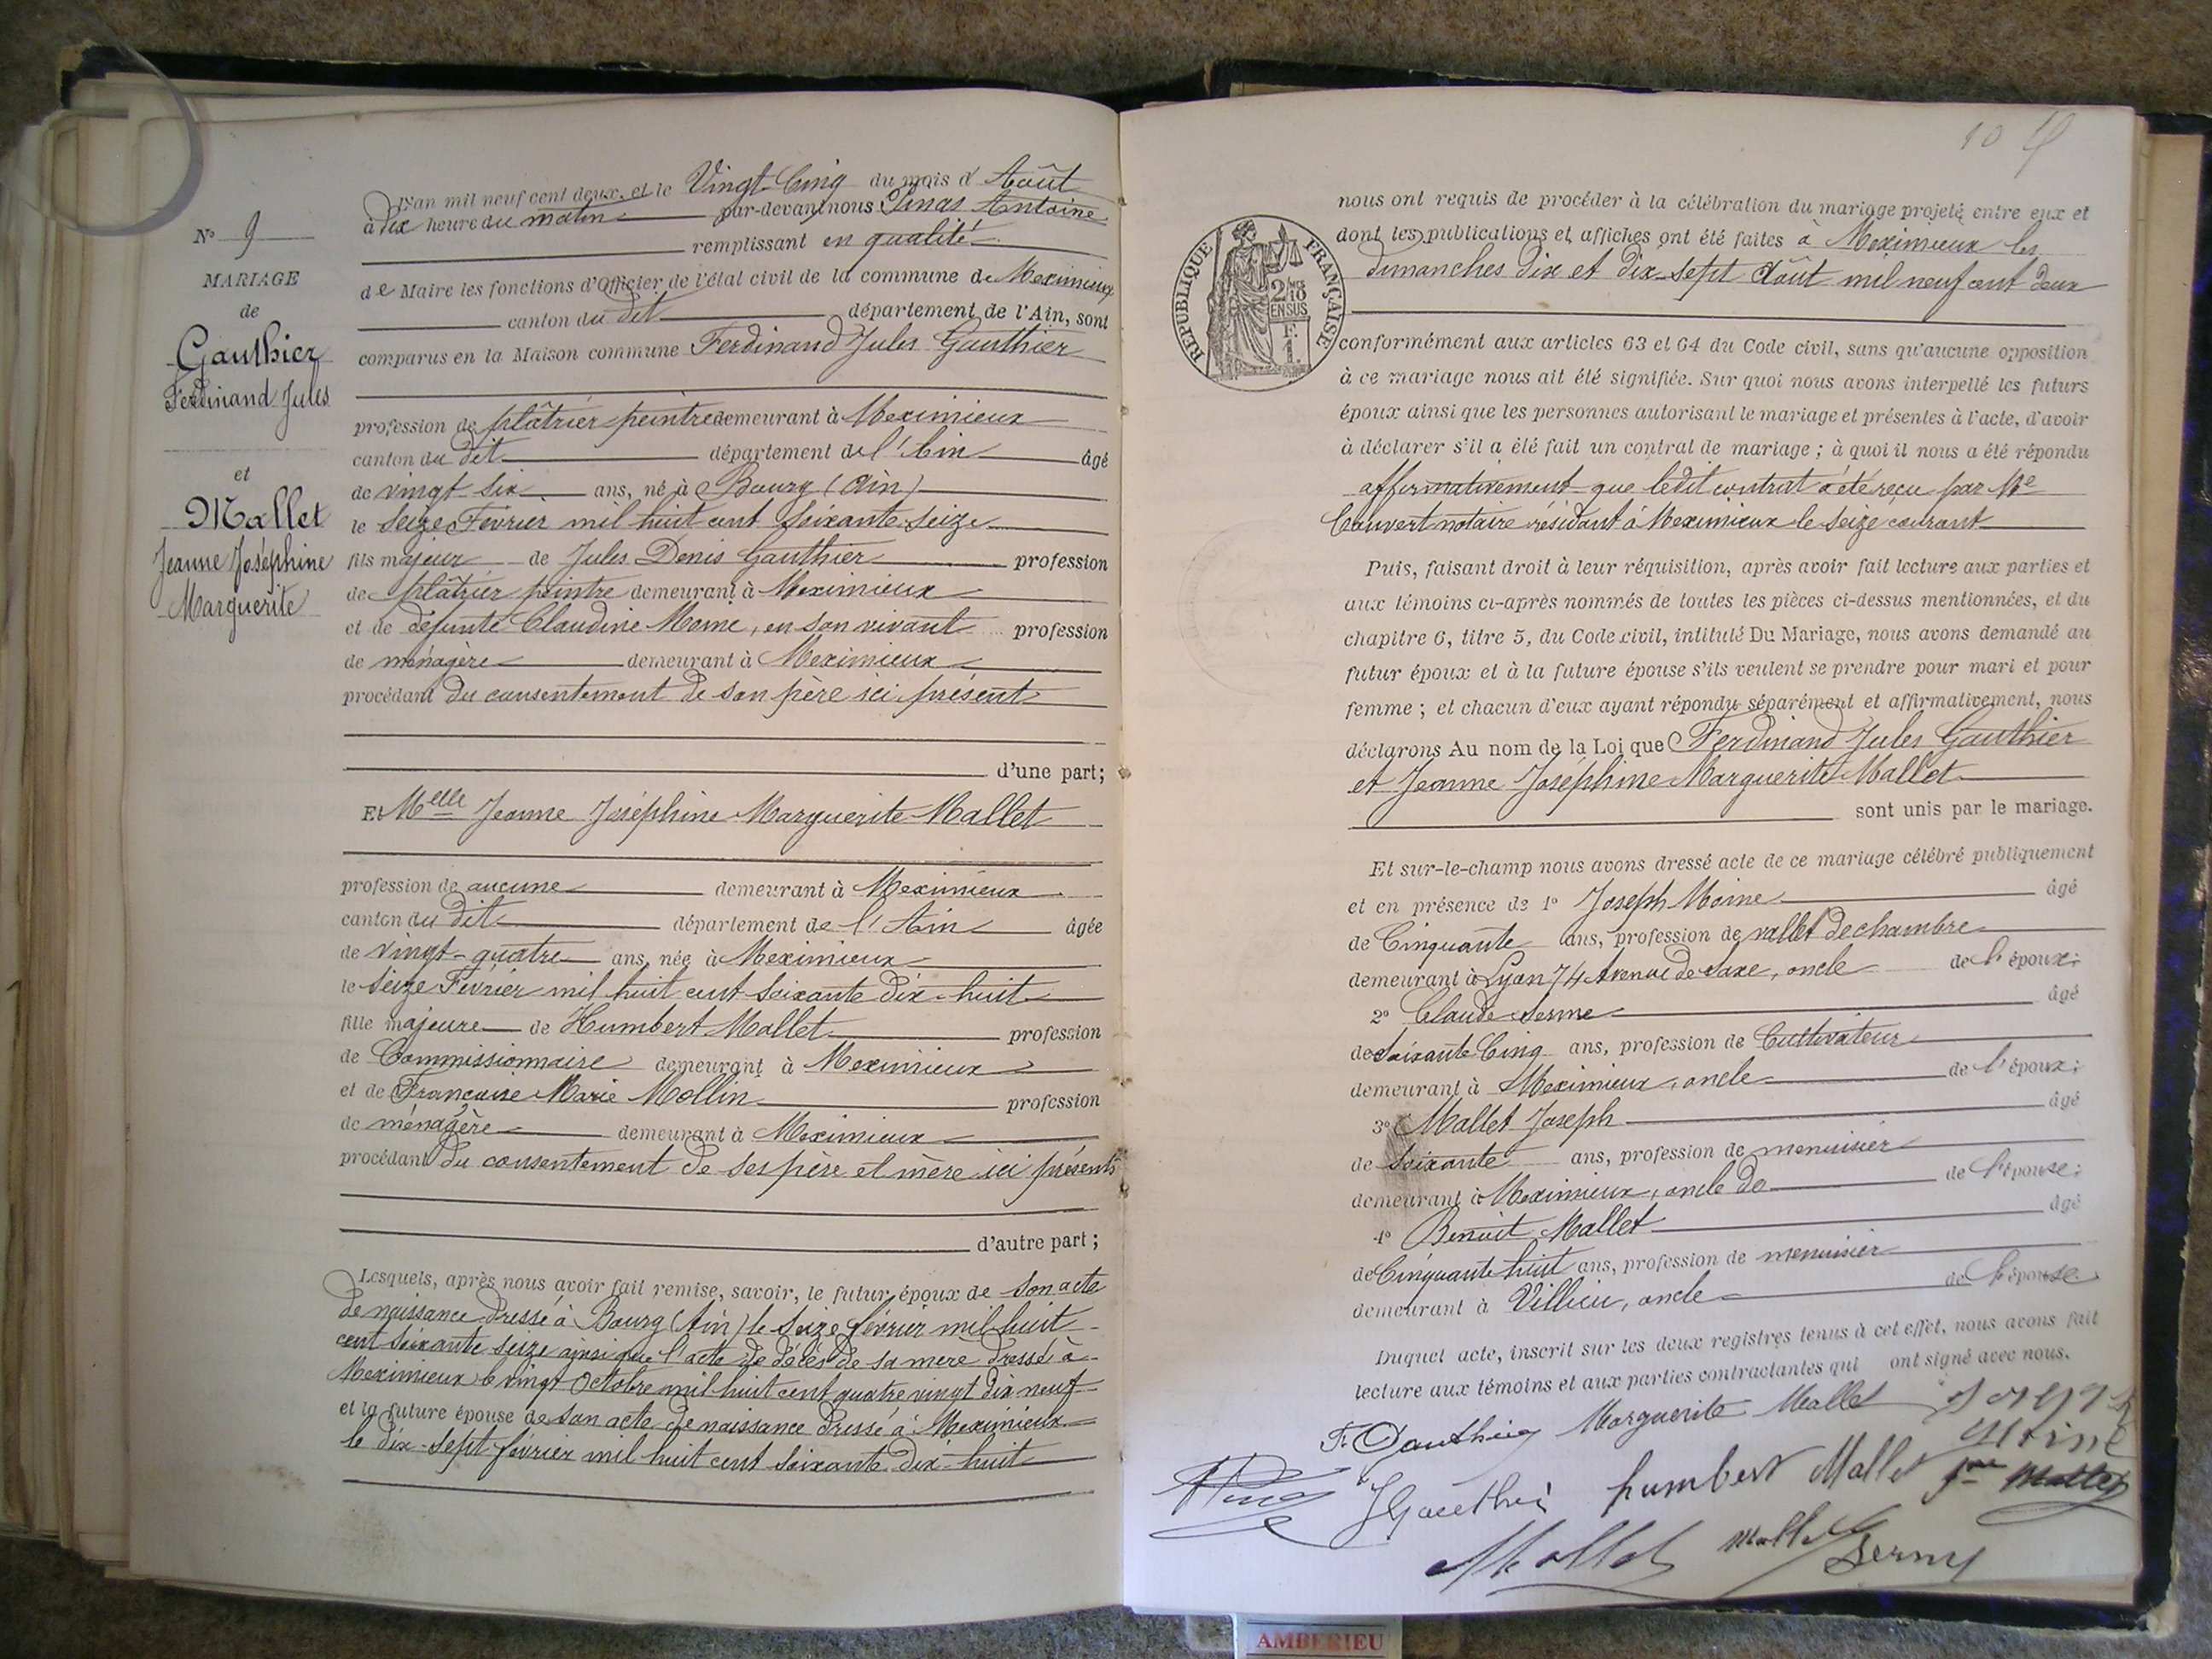 N° 9
MARIAGE
de
Gauthier
Ferdinand Jules
et
Mallet
Jeanne Joséphine
Marguerite
L'an mil neuf cent deux, et le Vingt-Cinq du mois d'Août
à dix heure du matin par-devant nous Antoine
remplissant en qualité
de Maire les fonctions d'Officier de l'état civil de la commune de Meximieux
canton du dit département de l'Ain, sont
comparus en la Maison commune Ferdinand Jules Gauthier
profession de plâtrier peintre demeurant à Meximieux
canton du dit département de l'Ain âgé
de vingt-six ans, né à Bourg (Ain)
le seize Février mil huit cent soixante-seize
fils majeur de Jules Denis Gauthier profession
de plâtrier peintre demeurant à Meximieux
et de défunte Claudine Moine, en son vivant profession
de ménagère demeurant à Meximieux
procédant du consentement de son père ici présent
d'une part;
Et Melle Jeanne Joséphine Marguerite Mallet
profession de aucune demeurant à Meximieux
canton du dit département de l'Ain âgée
de vingt-quatre ans, née à Meximieux
le seize Février mil huit cent soixante dix-huit
fille majeure de Humbert Mallet profession
de Commissionnaire demeurant à Meximieux
et de Françoise Marie Mollin profession
de ménagère demeurant à Meximieux
procédant du consentement de ses père et mère ici présents
d'autre part;
Lesquels, après nous avoir fait remise, savoir, le futur époux de son acte
de naissance dressé à Bourg (Ain) le seize février mil huit
cent soixante seize ainsi que l'acte de décès de sa mère dressé à
Meximieux le vingt Octobre mil huit cent quatre vingt dix neuf
et la future épouse de son acte de naissance dressé à Meximieux
le dix-sept février mil huit cent soixante dix-huit
10
RÉPUBLIQUE FRANÇAISE
2/10
EN SUS
F.
1.
nous ont requis de procéder à la célébration du mariage projeté entre eux et
dont les publications et affiches ont été faites à Meximieux les
dimanches dix et dix-sept Août mil neuf cent deux
conformément aux articles 63 et 64 du Code civil, sans qu'aucune opposition
à ce mariage nous ait été signifiée. Sur quoi nous avons interpellé les futurs
époux ainsi que les personnes autorisant le mariage et présentes à l'acte, d'avoir
à déclarer s'il a été fait un contrat de mariage; à quoi il nous a été répondu
affirmativement que ledit contrat a été reçu par Me
notaire résidant à Meximieux le seize courant
Puis, faisant droit à leur réquisition, après avoir fait lecture aux parties et
aux témoins ci-après nommés de toutes les pièces ci-dessus mentionnées, et du
chapitre 6, titre 5, du Code civil, intitulé Du Mariage, nous avons demandé au
futur époux et à la future épouse s'ils veulent se prendre pour mari et pour
femme; et chacun d'eux ayant répondu séparément et affirmativement, nous
déclarons Au nom de la Loi que Ferdinand Jules Gauthier
et Jeanne Joséphine Marguerite Mallet
sont unis par le mariage.
Et sur-le-champ nous avons dressé acte de ce mariage célébré publiquement
et en présence de 1° Joseph Moine âgé
de Cinquante ans, profession de vallet de chambre
demeurant à Lyon 74 Avenue de Saxe, oncle de l'époux;
2° Claude Serme âgé
de soixante Cinq ans, profession de Cultivateur
demeurant à Meximieux, oncle de l'époux;
3° Mallet Joseph âgé
de soixante ans, profession de menuisier
demeurant à Meximieux, oncle de de l'épouse;
4° Benoit Mallet âgé
de Cinquante huit ans, profession de menuisier
demeurant à Villieu, oncle de l'épouse
Duquel acte, inscrit sur les deux registres tenus à cet effet, nous avons fait
lecture aux témoins et aux parties contractantes qui ont signé avec nous.
F. Gauthier Marguerite Mallet
Moine
J Gauthier humbert Mallet Mallet
Mallet Mallet
AMBERIEU